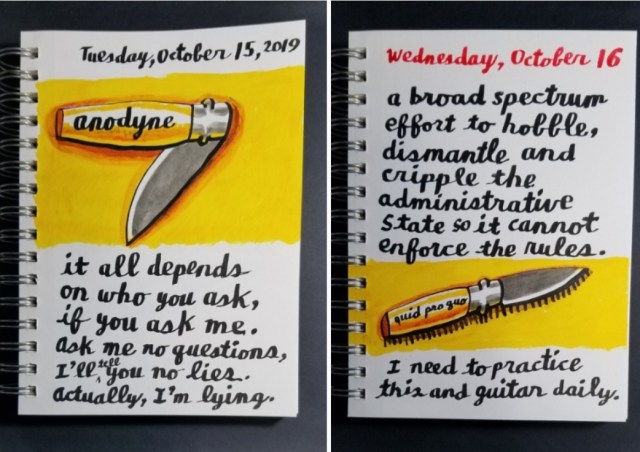 Tuesday, October 15, 2019
anodyne
it all depends
on who you ask,
if you ask me.
Ask me no questions,
I'll tell you no lies.
Actually, I'm lying.
Wednesday, October 16
a broad spectrum
effort to hobble,
dismantle and
cripple the
administrative
State so it cannot
enforce the rules.
quid pro quo
I need to practice
this and guitar daily.